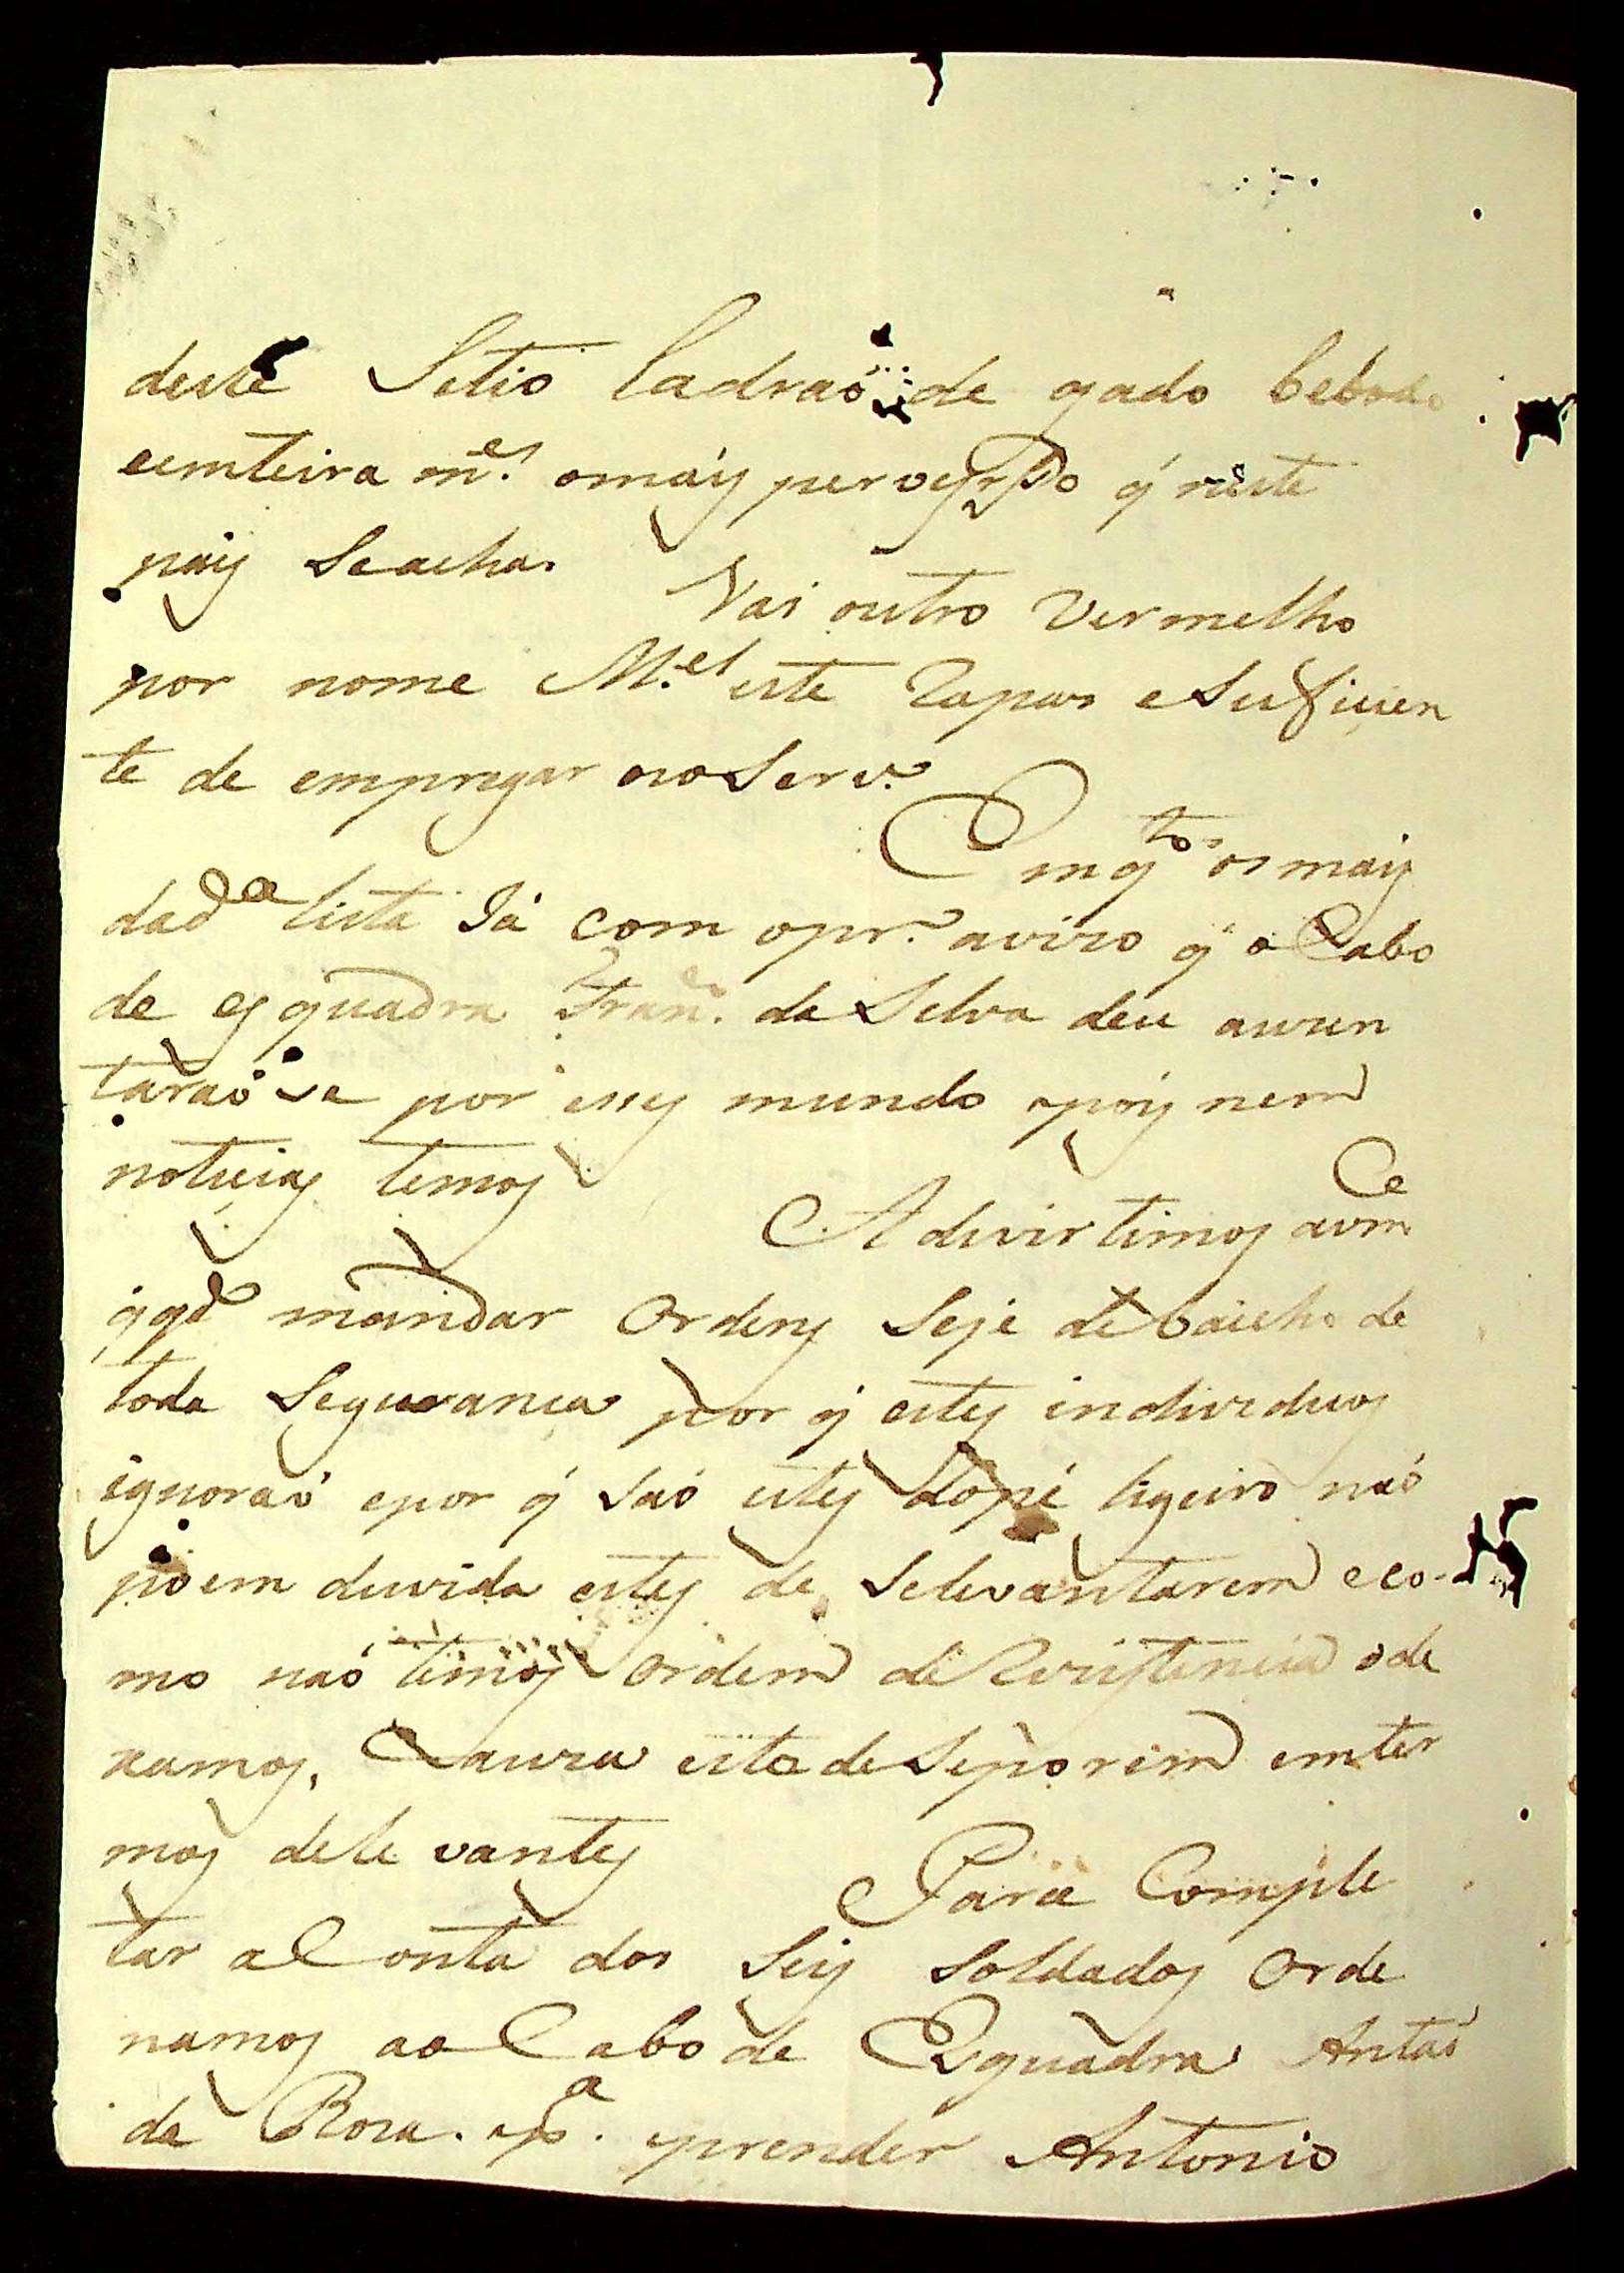 deste Setio ladraõ de gado bebado
eemteira m.e! omais pervesso q̃ neste
pais Seacha.
Vai outro Vermelho
por nome M.el este Rapas eSuficien
te de empregar noServ.o
Em q.to os mais
dad.a lista Já com opr.o avizo q̃ o Cabo
de esquadra Fran.co da Selva deu auzen
taraõ se por esses mundo apois nem
noticias temos
Advirtimos avm.ce
q̃ q.do mandar Ordens Seje debaicho de
toda Segurança por q̃ estes individuos
ignoraõ epor q̃ saõ estes dopé ligeiro naõ
poem duvida estes de Selevantarem eco-
mo naõ temos Ordem de Rezistencia o de
xamos, Cauza esta deSeporem emter
mos dele vantes
Para Comple
tar aConta dos Seis Soldados Orde
namos ao Cabo de Esquadra Antaõ
da Roza. p.a aprender Antonio